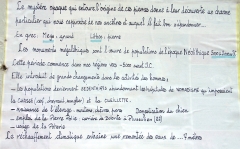 Le mystère presque qui entoure l'origine de ces pierres donne à leur découverte un charme
particulier qui nous rapproche de nos ancêtres et auquel il fait bon s'abandonner...
En grec, Mega : grand Lithos : pierre
Les monuments mégalithiques sont l'œuvre de populations de l'époque Néolithique
Cette période commence dans nos régions vers - 5000 avant JC.
Elle introduit de grands changements dans les activités des hommes :
- les populations deviennent SEDENTAIRES abandonnant les habitudes de NOMADISME qu'imposaient
la CHASSE (cerf, chevreuil, sanglier) et la CUEILLETTE.
- naissance de l'élevage : moutons, chèvres, porcs Domestication du chien
- emploi de la Pierre Polie
- usage de la Poterie
Le réchauffement climatique entraîne une remontée des eaux de